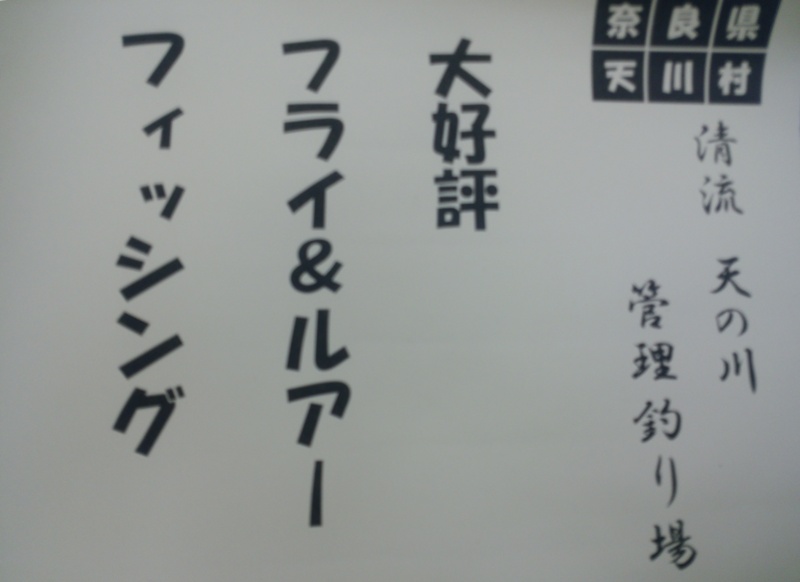 奈良県
天川村
清流 天の川
管理釣り場
大好評
フライ&ルアー
フィッシング